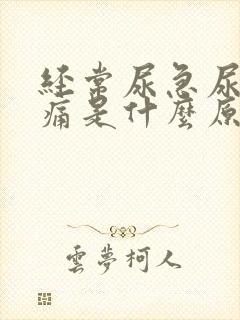 经常尿急尿
痛是什麽原
雲夢柯人